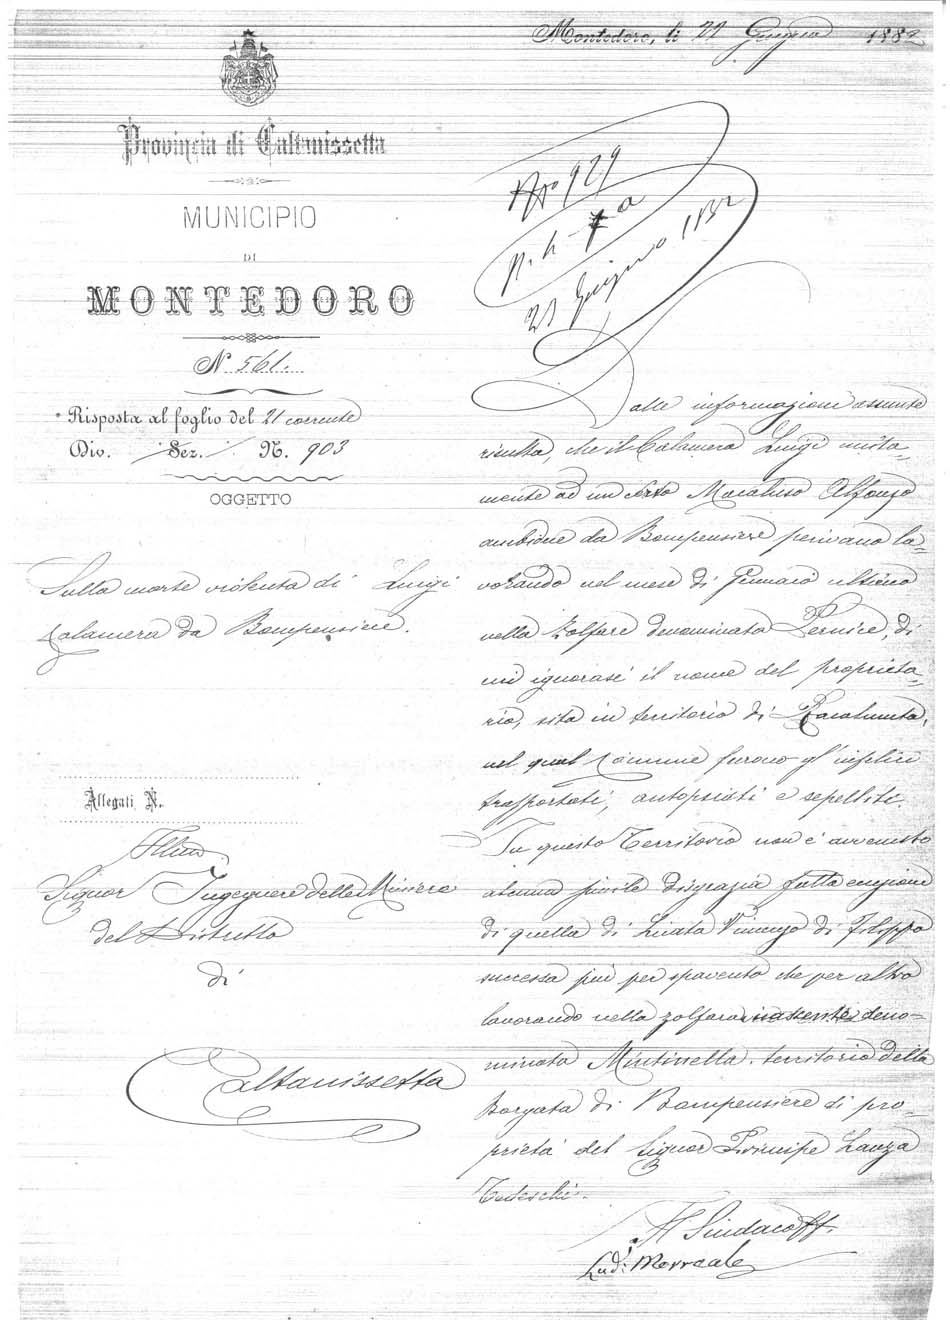 Montedoro, li 22 Giugno 1882
Provincia di Caltanissetta
MUNICIPIO
DI
MONTEDORO
N. 561.
Risposta al foglio del 21 corrente
Div. Sez. N. 903
OGGETTO
Sulla morte violenta di Luigi
Calamera da Bompensiere.
Allegati N.
Illmo
Signor Ingegnere delle Miniere
del Distretto
di
Caltanissetta
No 929
23 Giugno 1882
Dalle informazioni assunte
risulta, che il Calamera Luigi unita-
mente ad un certo Macaluso Alfonzo
ambione da Bompensiere perivano la-
vorando nel mese di Gennaio ultimo
nella Zolfare denominata Pernice, di
cui ignorasi il nome del proprieta-
rio, sita in territorio di Racalmuto,
nel qual Comune furono gl'infelici
trasportati, autopsiati e sepelliti.
In questo Territorio non è avvenuto
alcuna simile disgrazia fatta eccezione
di quella di Licata Vincenzo di Filippo
successa più per spavento che per altro
lavorando nella zolfara deno-
minata Mintinella territorio della
Borgata di Bompensiere di pro-
prietà del Signor Principe Lanza
Tedeschi.
Il Sindaco ff.
Lud: Morreale